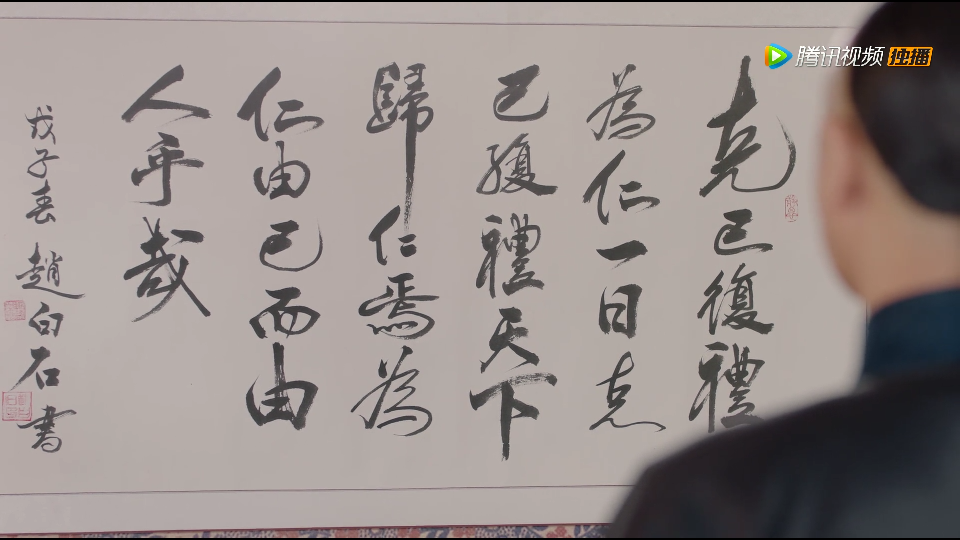 腾讯视频 独播
克己復禮
為仁一日克
己復禮天下
歸仁焉為
仁由己而由
人乎哉
戊子春 趙白石書